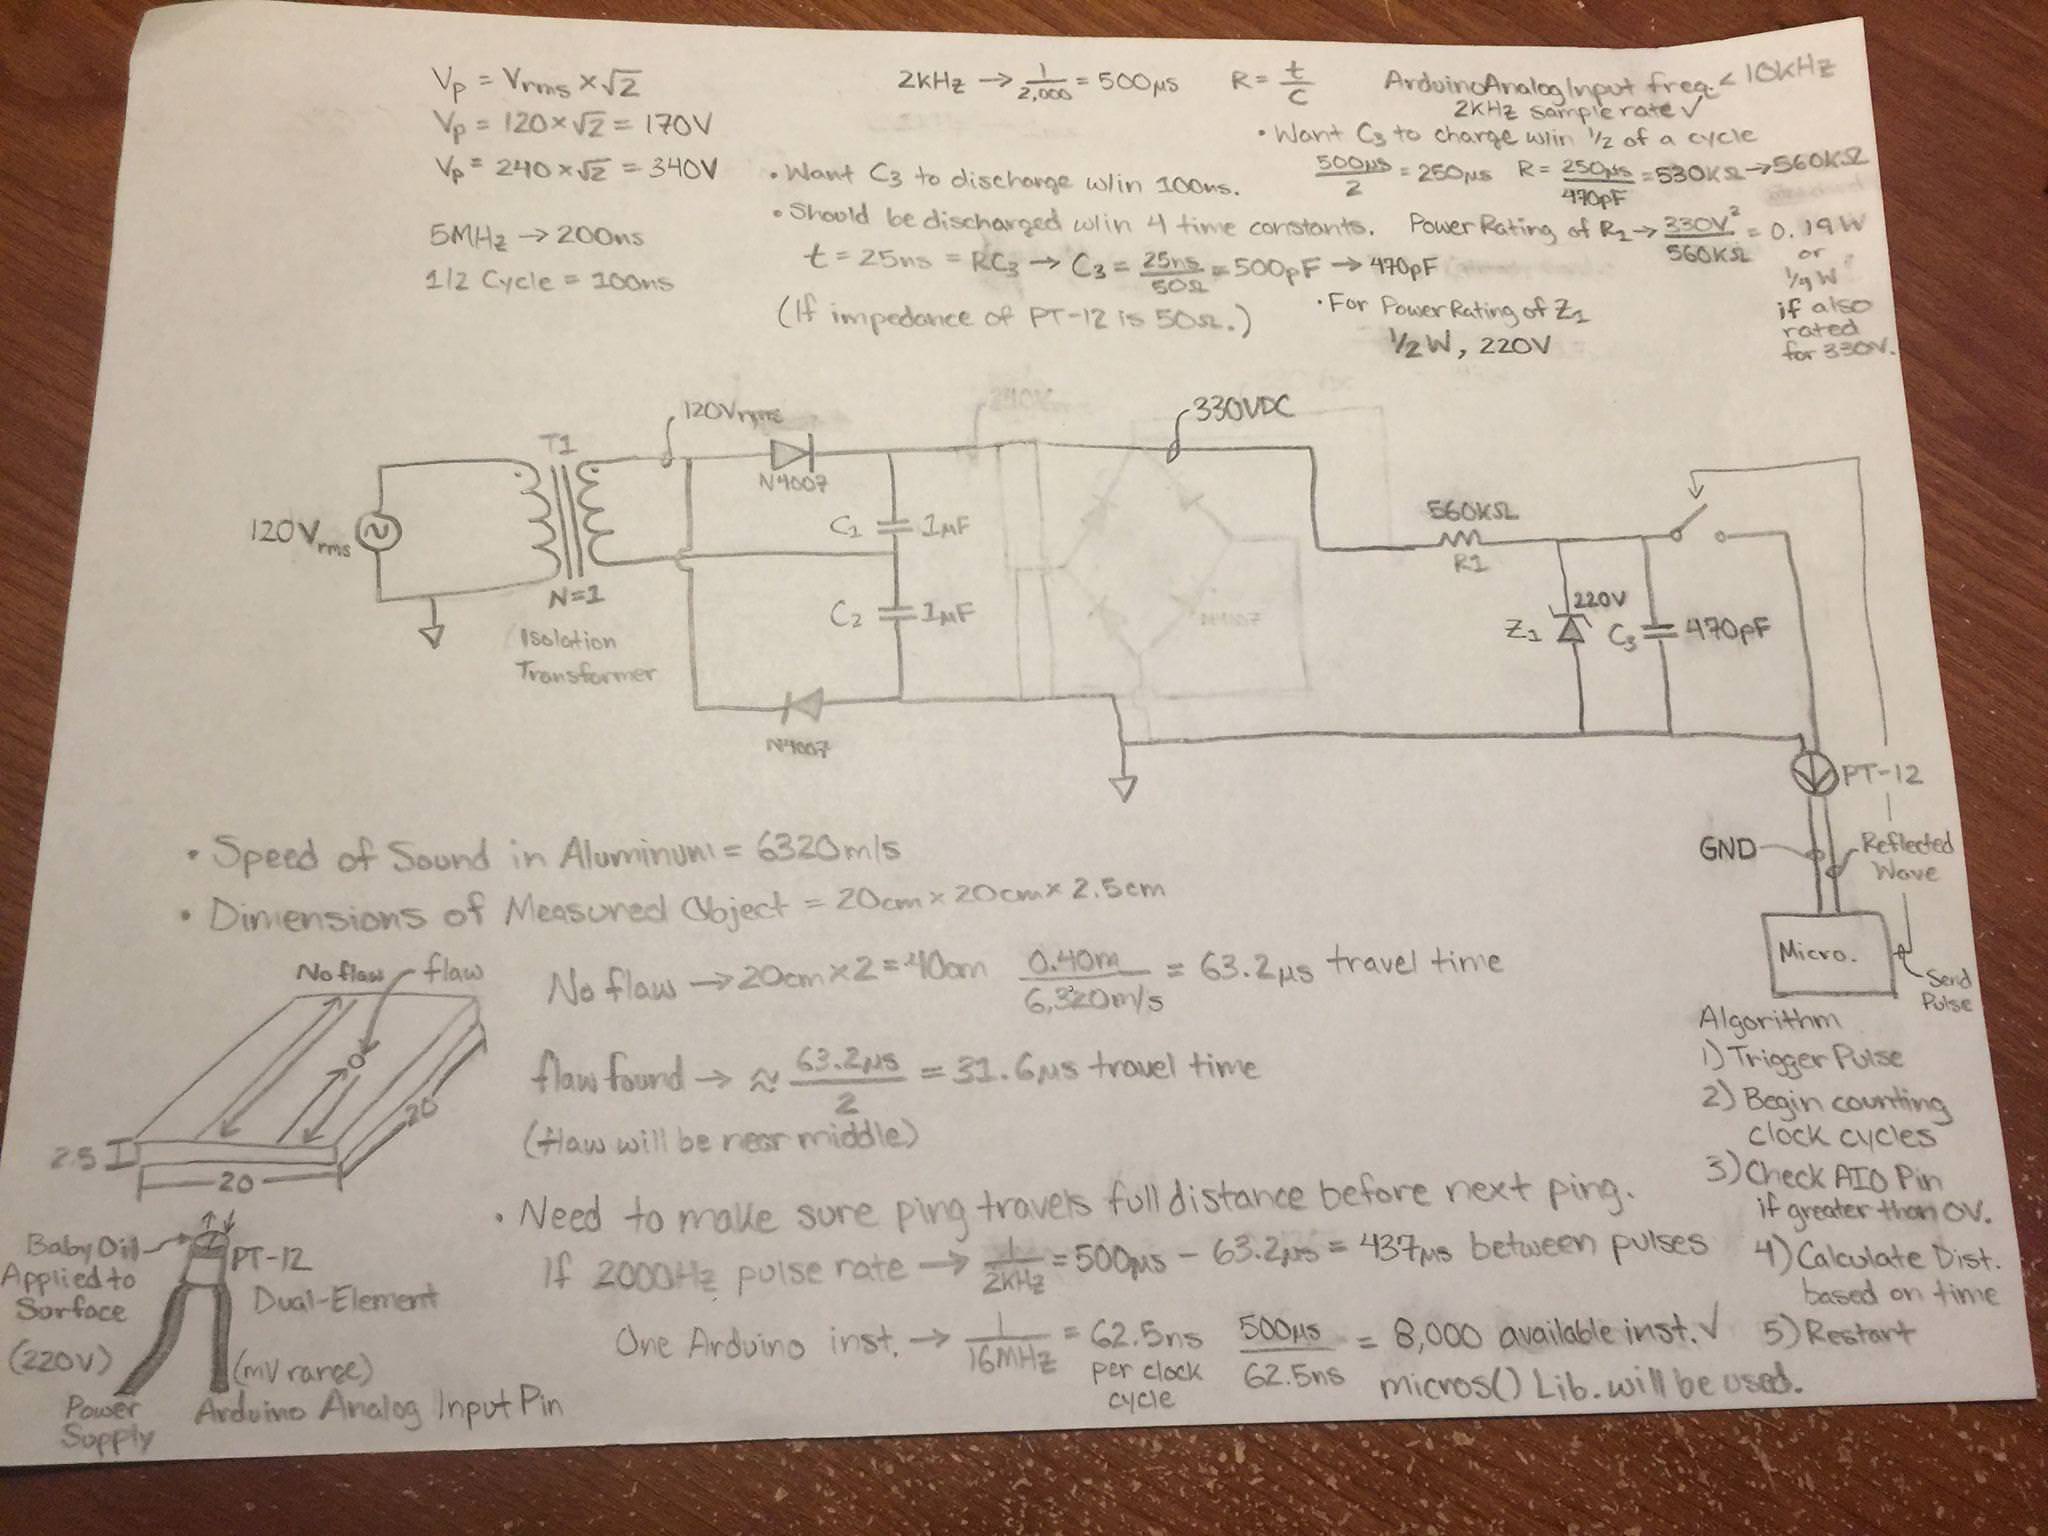 Vp = Vrms × √2
Vp = 120 × √2 = 170V
Vp = 240 × √2 = 340V
5MHz → 200ns
1/2 Cycle = 100ns
2kHz → 1/2,000 = 500μs
R = t/C
• Want C3 to discharge w/in 100ns.
• Should be discharged w/in 4 time constants.
t = 25ns = RC3 → C3 = 25ns/50Ω = 500pF → 470pF
(If impedance of PT-12 is 50Ω.)
Arduino Analog Input freq. < 10kHz
2kHz sample rate ✓
• Want C3 to charge w/in 1/2 of a cycle
500μs/2 = 250μs R = 250μs/470pF = 530KΩ → 560KΩ
Power Rating of R1 → 330V²/560KΩ = 0.19W
or
1/4 W
if also
rated
for 330V.
• For Power Rating of Z1
1/2 W, 220V
120Vrms
T1
N=1
Isolation
Transformer
120Vrms
N4007
C1
1μF
C2
1μF
N4007
330VDC
560KΩ
R1
220V
Z1
C3
470pF
PT-12
GND
Reflected
Wave
Micro.
Send
Pulse
• Speed of Sound in Aluminum = 6320m/s
• Dimensions of Measured Object = 20cm × 20cm × 2.5cm
No flaw
flaw
2.5
20
20
No flaw → 20cm × 2 = 40cm 0.40m/6,320m/s = 63.2μs travel time
flaw found → ≈ 63.2μs/2 = 31.6μs travel time
(flaw will be near middle)
• Need to make sure ping travels full distance before next ping.
If 2000Hz pulse rate → 1/2kHz = 500μs - 63.2μs = 437μs between pulses
One Arduino inst. → 1/16MHz = 62.5ns
per clock
cycle
500μs/62.5ns = 8,000 available inst. ✓
micros() Lib. will be used.
Baby Oil
Applied to
Surface
PT-12
Dual-Element
(220V)
Power
Supply
(mV range)
Arduino Analog Input Pin
Algorithm
1) Trigger Pulse
2) Begin counting
clock cycles
3) Check AIO Pin
if greater than 0V.
4) Calculate Dist.
based on time
5) Restart